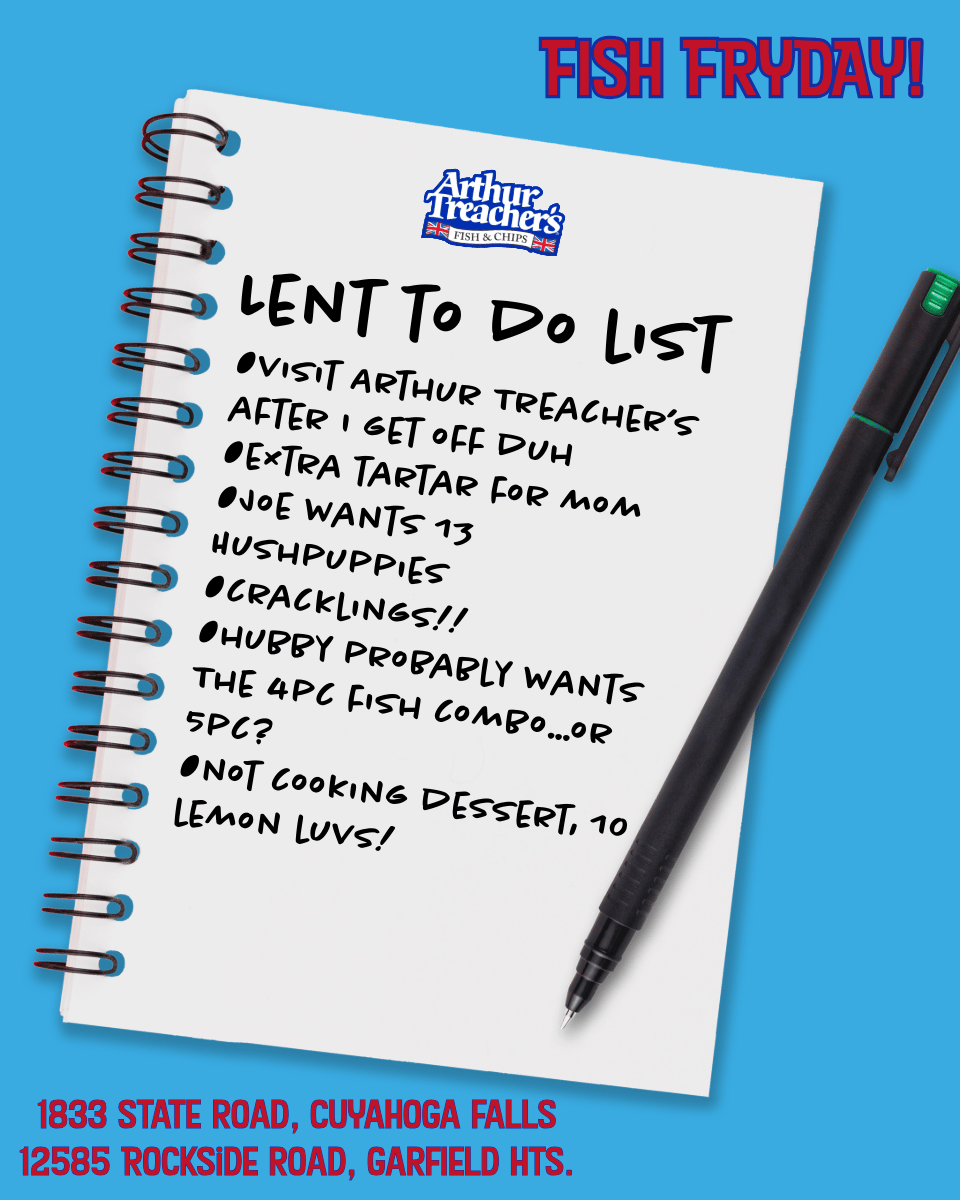 FISH FRYDAY!
Arthur
Treacher's
FISH & CHIPS
LENT TO DO LIST
•VISIT ARTHUR TREACHER'S
AFTER I GET OFF DUH
•EXTRA TARTAR FOR MOM
•JOE WANTS 13
HUSHPUPPIES
•CRACKLINGS!!
•HUBBY PROBABLY WANTS
THE 4PC FISH COMBO...OR
5PC?
•NOT COOKING DESSERT, 10
LEMON LUVS!
1833 STATE ROAD, CUYAHOGA FALLS
12585 ROCKSIDE ROAD, GARFIELD HTS.